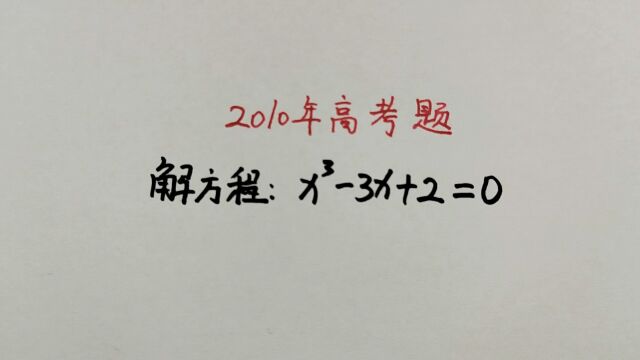 2010年高考题
解方程：x³-3x+2=0